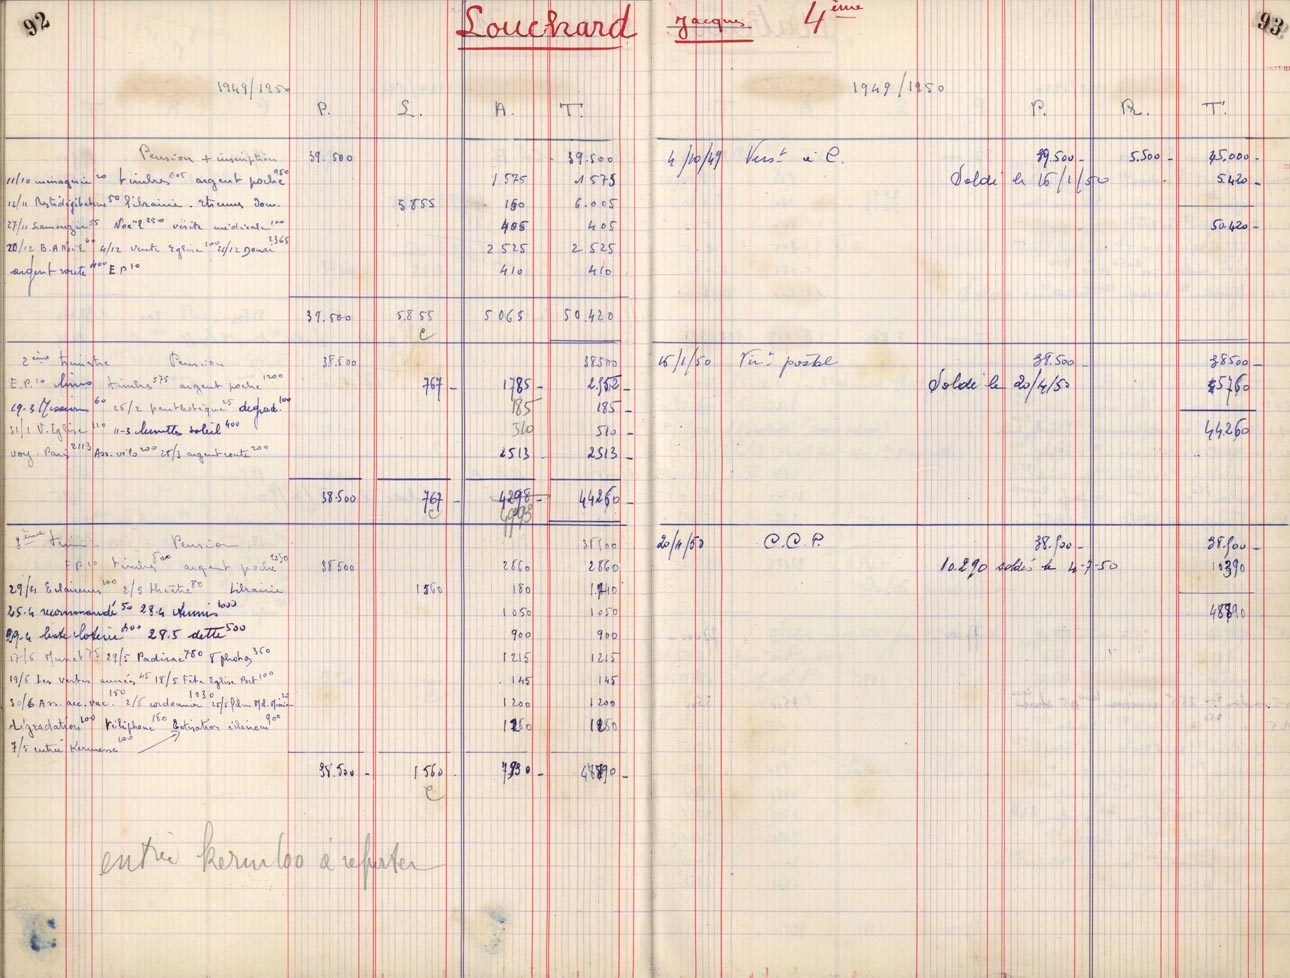 92
Louchard Jacques 4ème
93
1949/1950
P. L. A. T.
Pension + inscription 39.500 39.500
11/10 ménagerie 20 timbres 605 argent poche 950 1 575 1 575
librairie 5855 150 6.005
27/11 55 Noël 250 visite médicale 100 405 405
20/12 B.A Noël 60 4/12 vente Eglise 100 21/12 2365 2 525 2 525
argent route 400 E P 10 410 410
39.500 5855 5065 50.420
c
2ème trimestre Pension 38.500 38500
E.P. 10 livres timbres 575 argent poche 1200 767 - 1785 - 2552 -
19.3 Missions 60 25/2 25 dégrad. 100 185 185 -
31/1 V. Eglise 110 11-3 lunettes soleil 400 510 510 -
voy. Paris 2113 Ass. vélo 200 25/3 argent route 200 2513 2513 -
38.500 767 - 44260 -
4993
c
3ème trim. Pension 38500
E.P. 10 timbres 500 argent poche 38500 2860 2860
29/4 Eclaireurs 100 2/5 théâtre 80 librairie 1560 180 1740
25.4 recommandé 50 28.4 1000 1050 1050
29.4 liste loterie 400 28.5 dette 500 900 900
17/6 75 29/5 Padirac 780 8 photos 360 1215 1215
19/5 Les vertes années 45 18/5 Fête Eglise Port 100 145 145
30/6 Ass. acc. vac. 150 2/6 cordonnier 1030 20 1200 1200
dégradation 100 téléphone 180 Cotisation éclaireur 900
7/5 entrée Kermesse 100
38.500 - 1560 -
c
entrée kerm 100 à reporter
1949/1950
P. R. T.
4/10/49 Verst à C. 39.500 - 5.500 - 45.000 -
Soldé le 16/1/50 5.420 -
50.420 -
15/1/50 Virt postal 38.500 - 38500 -
Soldé le 20/4/50 5760
44260
20/4/50 C.C.P. 38.500 - 38.500 -
10.290 soldés le 4-7-50